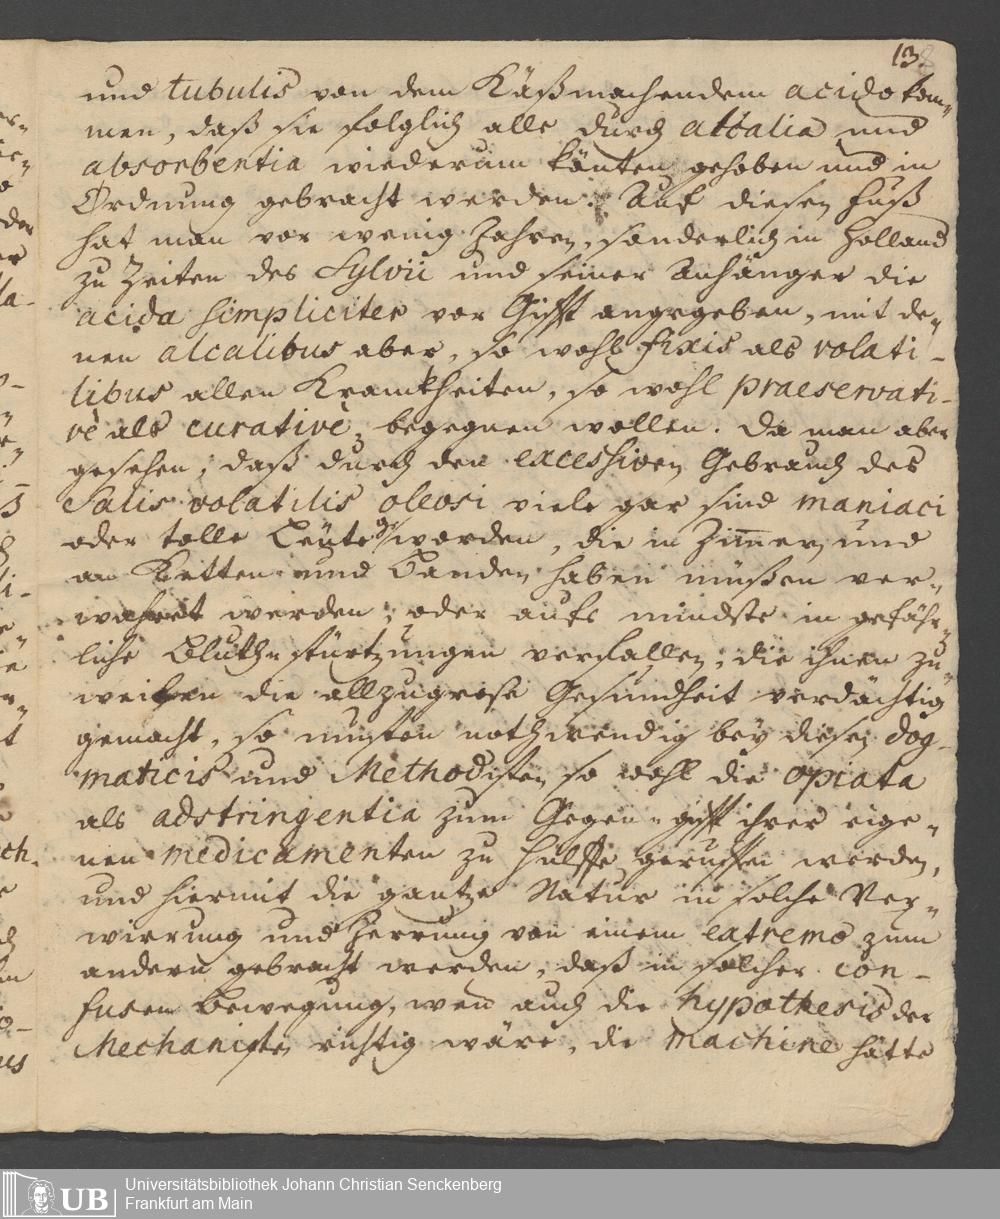 13.
und tubulis von dem Käßmachendem acido kom„
men, daß sie folglich alle durch alcalia und
absorbentia wiederum könten gehoben und in
Ordnung gebracht werden. Auf diesen Fuß
hat man vor wenig Jahren, sonderlich in Holland
zu Zeiten des Sylvii und seiner Anhänger die
acida simpliciter vor Gifft angegeben, mit de„
nen alcalibus aber, so wohl fixis als volati-
libus allen Kranckheiten, so wohl praeservati-
vè als curativè, begegnen wollen. Da man aber
gesehen, daß durch den excessiven Gebrauch des
Salis volatilis oleosi viele gar sind maniaci
oder tolle Leüte geworden, die in Zimmern und
an Ketten und Banden haben müßen ver„
wahret werden; oder aufs mindste in gefähr„
liche Bluth-stürtzungen verfallen; die ihnen zu„
weilen die allzugrose Gesundheit verdächtig
gemacht, so musten nothwendig bey diesen dog-
maticis und Methodisten so wohl die opiata
als adstringentia zum Gegen-gifft ihrer eige„
nen medicamenten zu Hülffe geruffen werden,
und hiermit die gantze Natur in solche Ver„
wirrung und Zerrung von einem extremo zum
andern gebracht werden, daß in solcher con-
fusen Bewegung, wen auch die hypothesis der
Mechanisten richtig wäre, die machine hätte
UB
Universitätsbibliothek Johann Christian Senckenberg
Frankfurt am Main